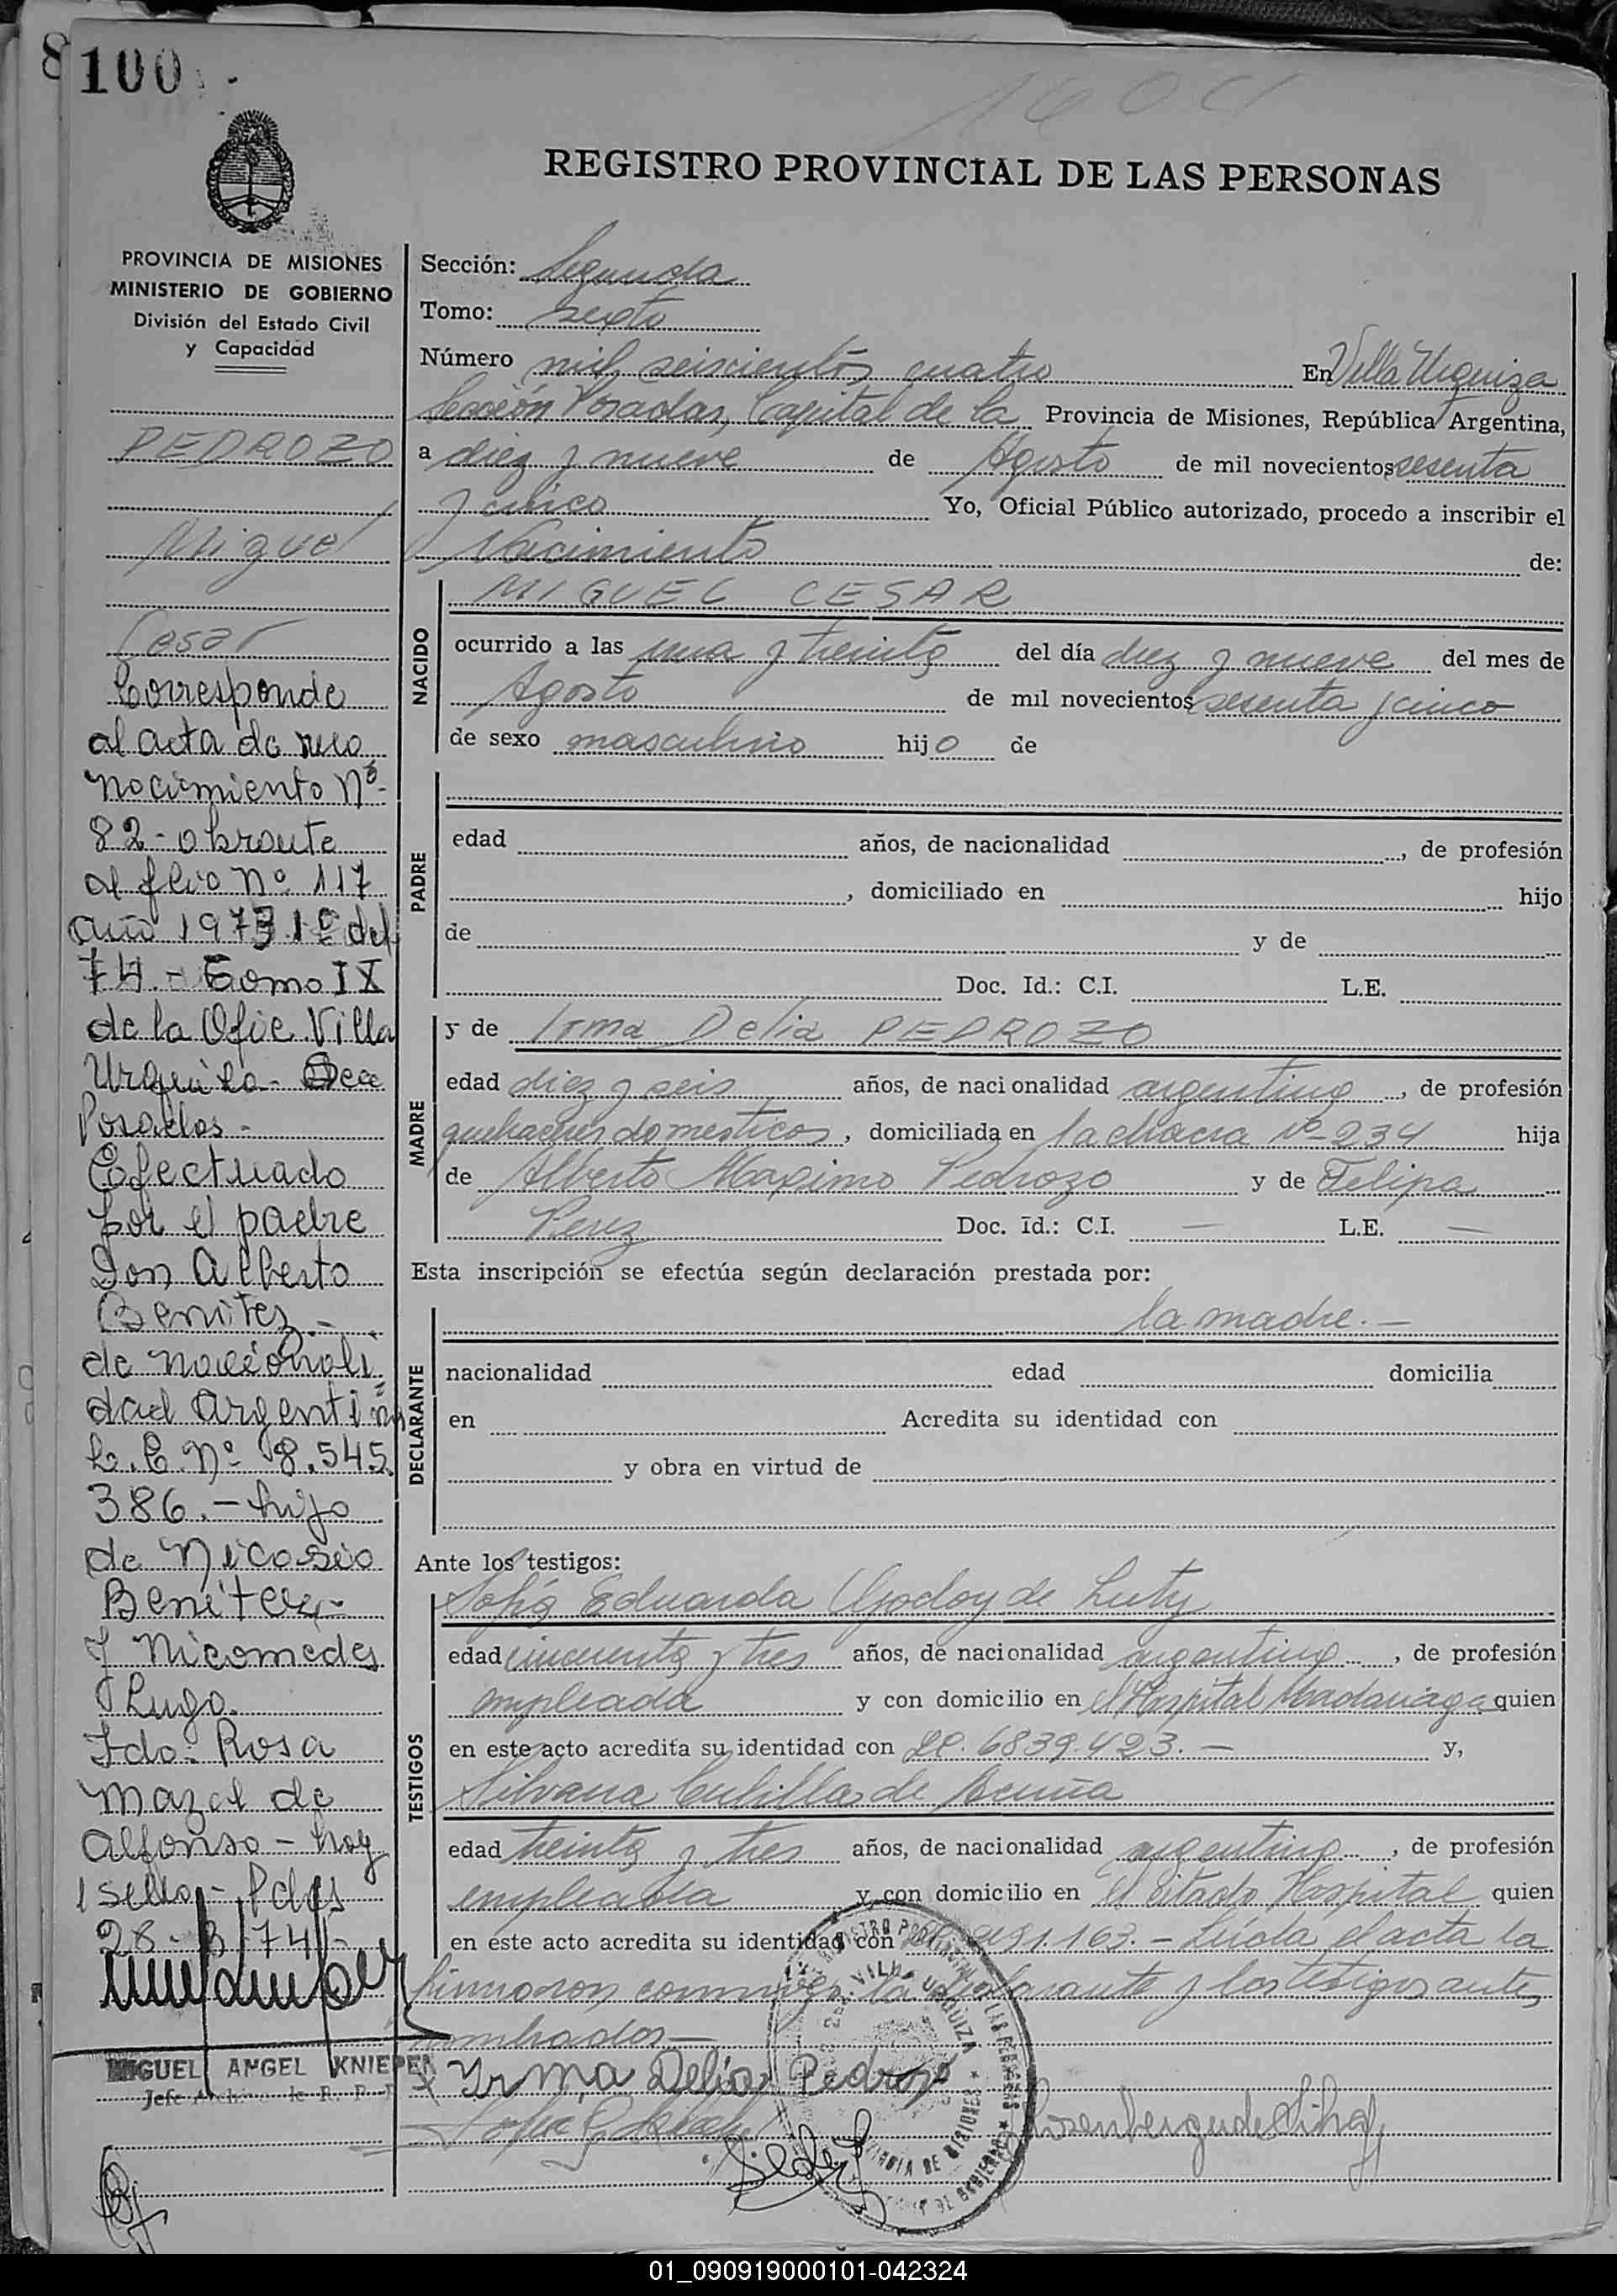 100
1604
REGISTRO PROVINCIAL DE LAS PERSONAS
PROVINCIA DE MISIONES
MINISTERIO DE GOBIERNO
División del Estado Civil
y Capacidad
PEDROZO
Miguel
Cesar
Corresponde
al acta de reco
nocimiento Nº
82 - obrante
al folio Nº 117
año 1973 1º del
74.- Tomo IX
de la Ofic. Villa
Urquiza - Secc
Posadas -
Efectuado
por el padre
Don Alberto
Benitez -
de nacionali
dad argentina
L.E. Nº 8.545.
386.- hijo
de Nicasio
Benitez -
y Nicomedes
Lugo.
Fdo: Rosa
Mazal de
Alfonso - hay
1 sello - Pdas
28-3-74-
MIGUEL ANGEL KNIEPER
Sección: Segunda
Tomo: sexto
Número mil seiscientos cuatro En Villa Urquiza
Sección Posadas, Capital de la Provincia de Misiones, República Argentina,
a diez y nueve de Agosto de mil novecientos sesenta
y cinco Yo, Oficial Público autorizado, procedo a inscribir el
Nacimiento de:
NACIDO
MIGUEL CESAR
ocurrido a las una y treinta del día diez y nueve del mes de
Agosto de mil novecientos sesenta y cinco
de sexo masculino hijo de
PADRE
edad años, de nacionalidad , de profesión
, domiciliado en hijo
de y de
Doc. Id.: C.I. L.E.
MADRE
y de Irma Delia PEDROZO
edad diez y seis años, de nacionalidad argentina, de profesión
quehaceres domesticos, domiciliada en la chacra Nº 234 hija
de Alberto Maximo Pedrozo y de Felipa
Perez Doc. Id.: C.I. — L.E. —
Esta inscripción se efectúa según declaración prestada por:
DECLARANTE
la madre.-
nacionalidad edad domicilia
en Acredita su identidad con
y obra en virtud de
Ante los testigos:
TESTIGOS
Sofia Eduarda Godoy de Luty
edad cincuenta y tres años, de nacionalidad argentina, de profesión
empleada y con domicilio en el Hospital Madariaga quien
en este acto acredita su identidad con LC. 6839.423.- y,
Silvana Cubilla de Acuña
edad treinta y tres años, de nacionalidad argentina, de profesión
empleada y con domicilio en el citado Hospital quien
en este acto acredita su identidad con 163.- Leída el acta la
firmaron conmigo la declarante y los testigos antes
nombrados-
Yrma Delia Pedrozo
01_090919000101-042324